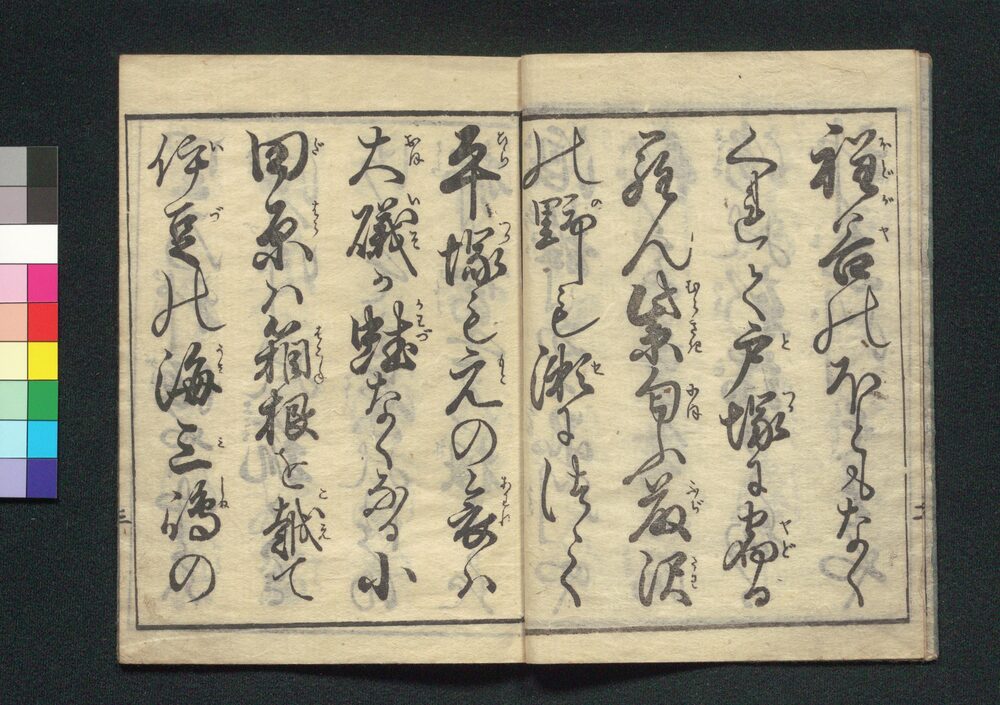 程谷のほともなく
くれて戸塚に宿る
らん紫匂ふ藤沢
の野もせにつゝく
平塚も元の哀ハ
大磯か蛙なくなる小
田原ハ箱根を越て
伊豆の海三嶋の